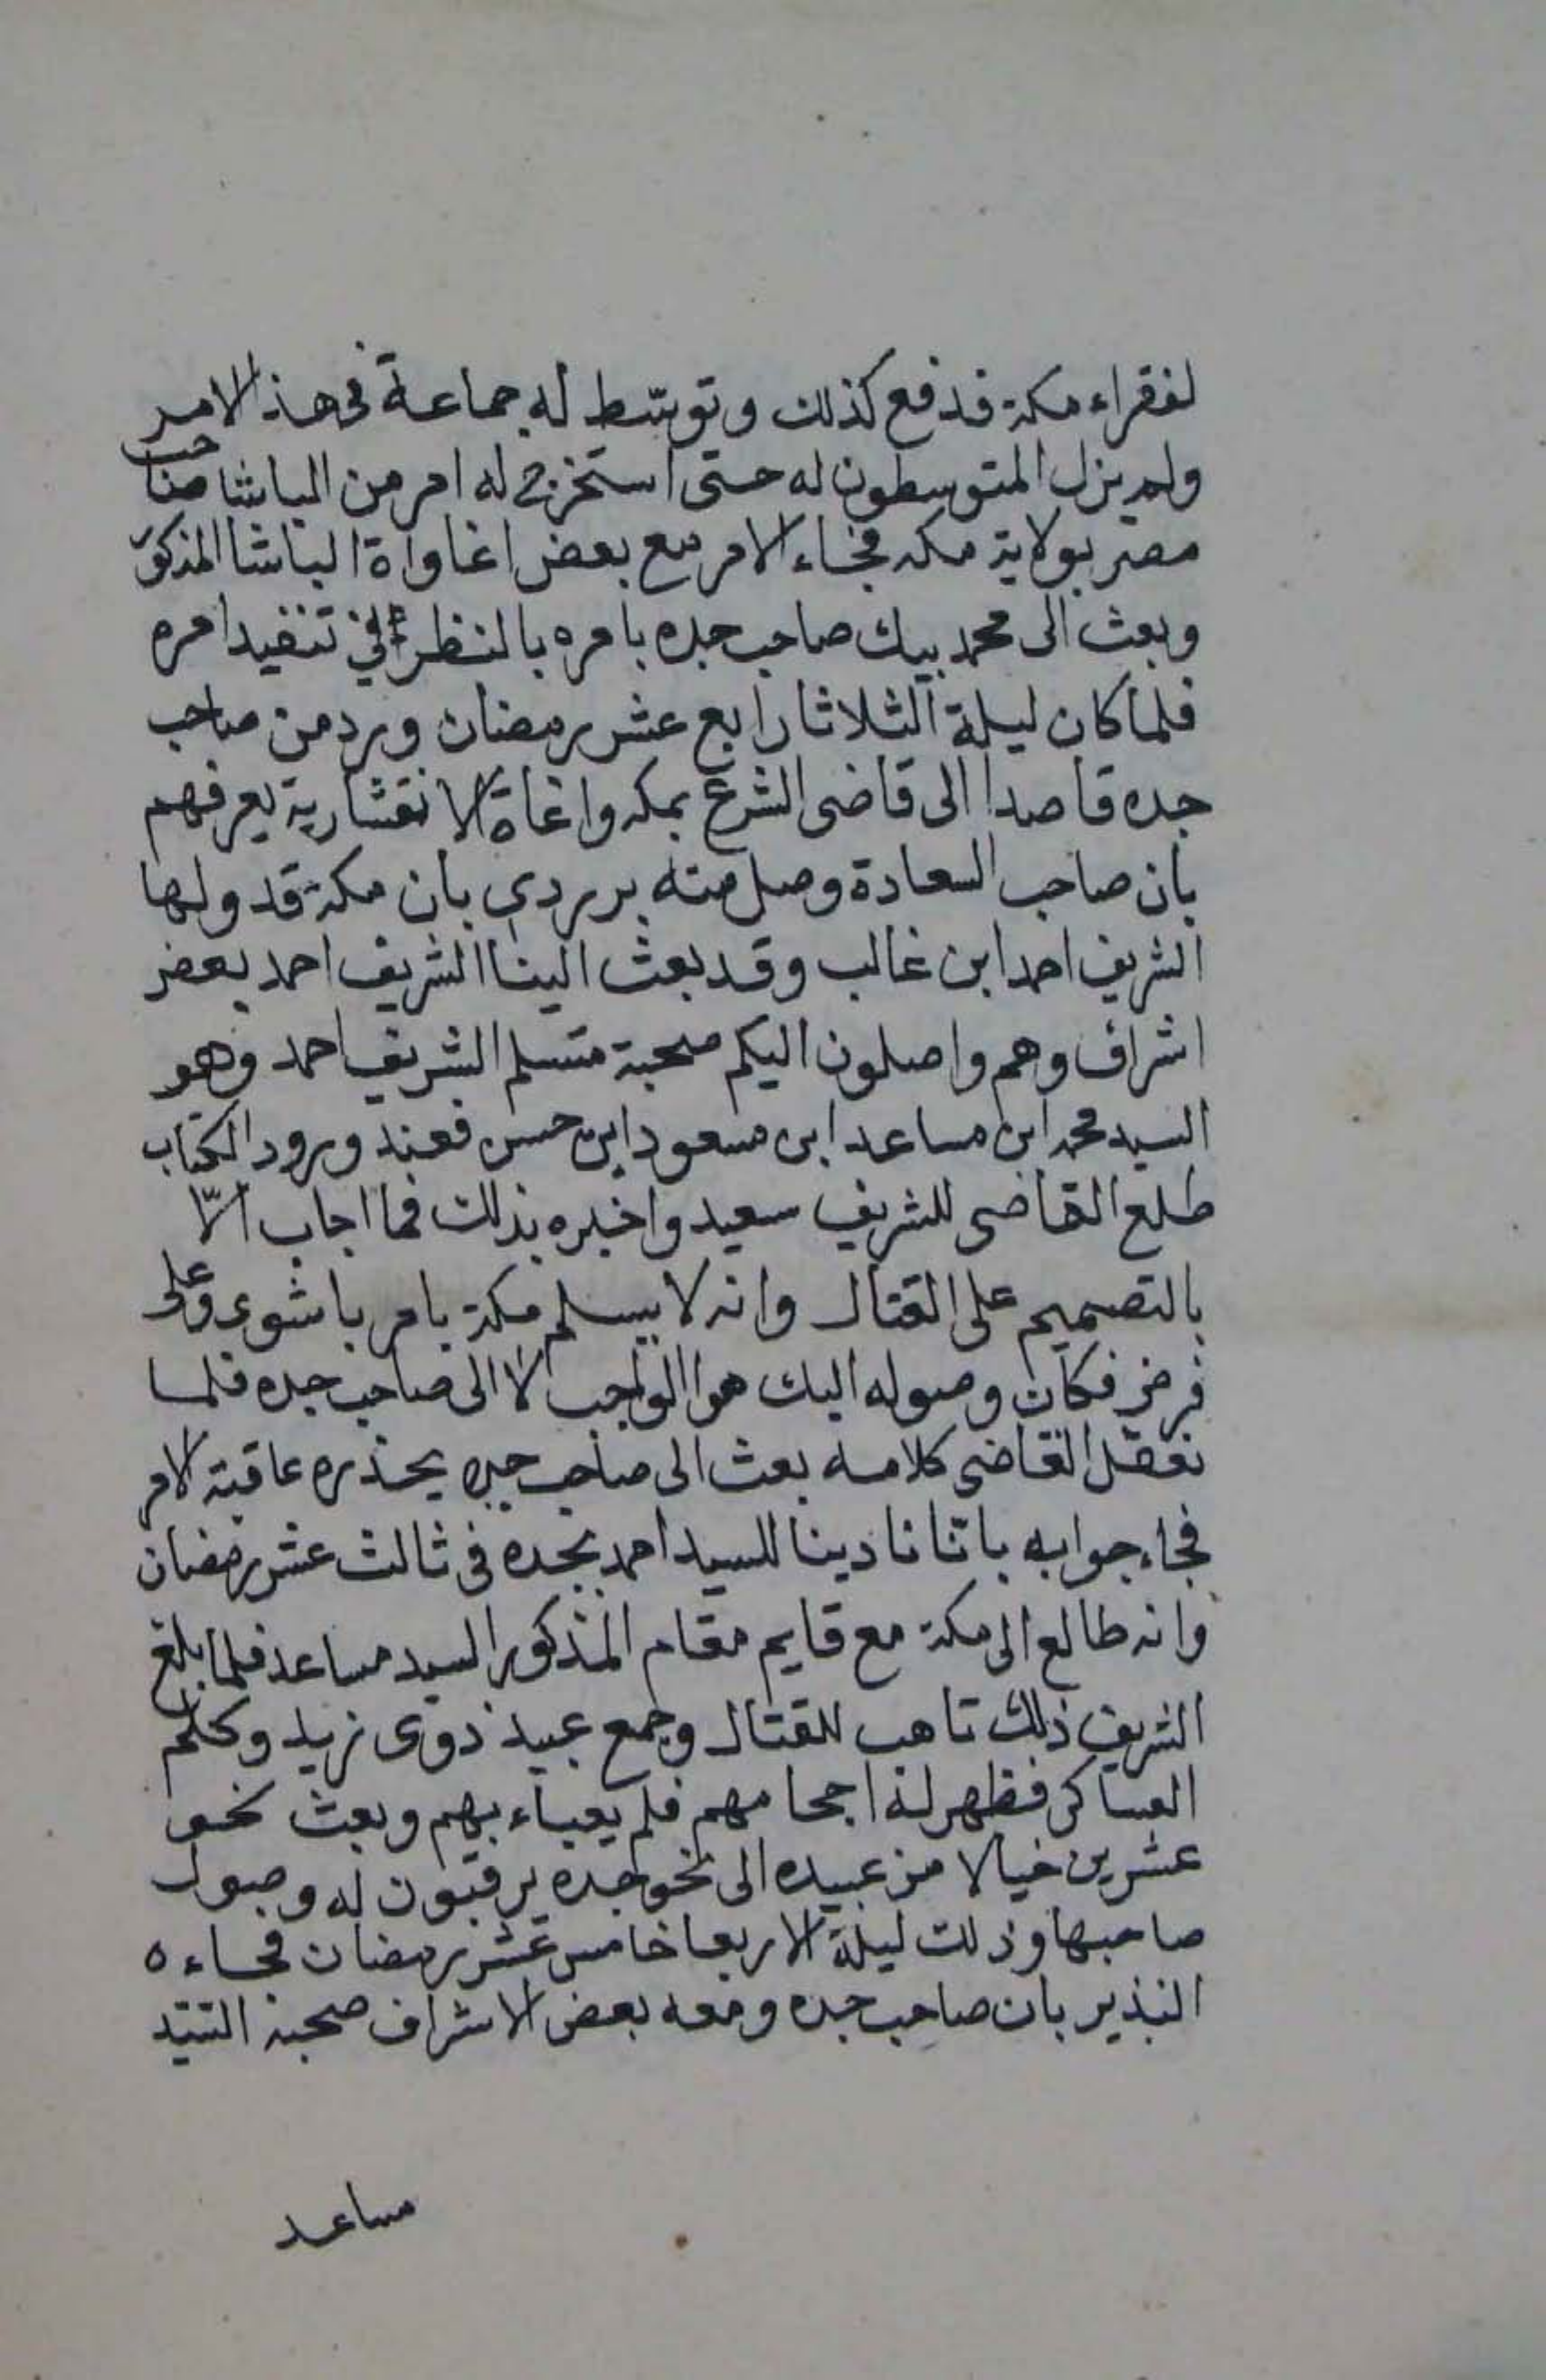 لفقراء مكة فدفع كذلك وتوسّط له جماعة في هذا الامر
ولم يزل المتوسطون له حتى استخرج له امر من الباشا صاحب
مصر بولاية مكه فجاء الامر مع بعض اغاواة الباشا المذكور
وبعث الى محمد بيك صاحب جده بامره بالنظر في تنفيد امره
فلما كان ليلة الثلاثا رابع عشر رمضان ورد من صاحب
جده قاصدا الى قاضى الشرع بمكه واغاة الانقشارية يعرفهم
بان صاحب السعادة وصل منه بربردى بان مكة قد ولها
الشريف احمد ابن غالب وقد بعث الينا الشريف احمد بعض
اشراف وهم واصلون اليكم صحبة متسلم الشريف احمد وهو
السيد محمد ابن مساعد ابن مسعود ابن حسن فعند ورود الكتاب
طلع القاضى للشريف سعيد واخبره بذلك فما اجاب الّا
بالتصميم على القتال وانه لا يسلم مكة بامر باشوى وعلى
فرض فكان وصوله اليك هو الواجب لا الى صاحب جده فلما
تعقل القاضى كلامه بعث الى صاحب جده يحذره عاقبة الامر
فجاء جوابه باننا نادينا للسيد احمد بجده في ثالث عشر رمضان
وانه طالع الى مكة مع قايم مقام المذكور السيد مساعد فلما بلغ
الشريف ذلك تاهب للقتال وجمع عبيد ذوى زيد وكلم
العساكر فظهر له اجحامهم فلم يعباء بهم وبعث نحو
عشرين خيالا من عبيده الى نحو جده يرقبون له وصول
صاحبها وذلك ليلة الاربعا خامس عشر رمضان فجاءه
النذير بان صاحب جده ومعه بعض الاشراف صحبة السيد
مساعد